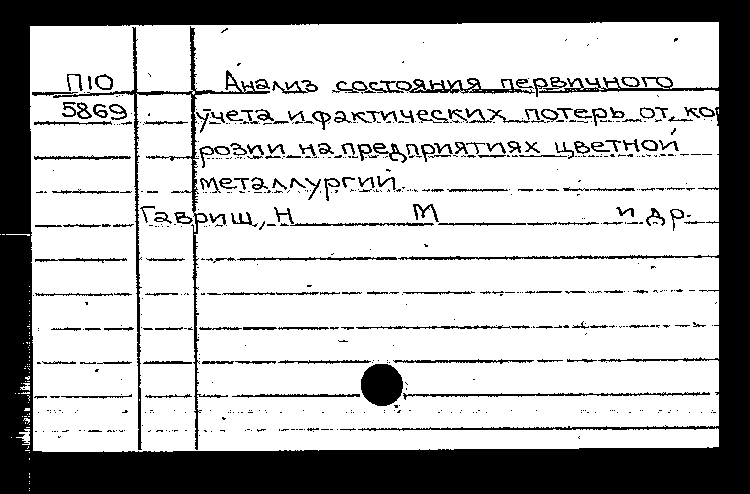 П10 Анализ состояния первичного
5869 учета и фактических потерь от кор
розии на предприятиях цветной
металлургии.
Гавриш, Н М и др.